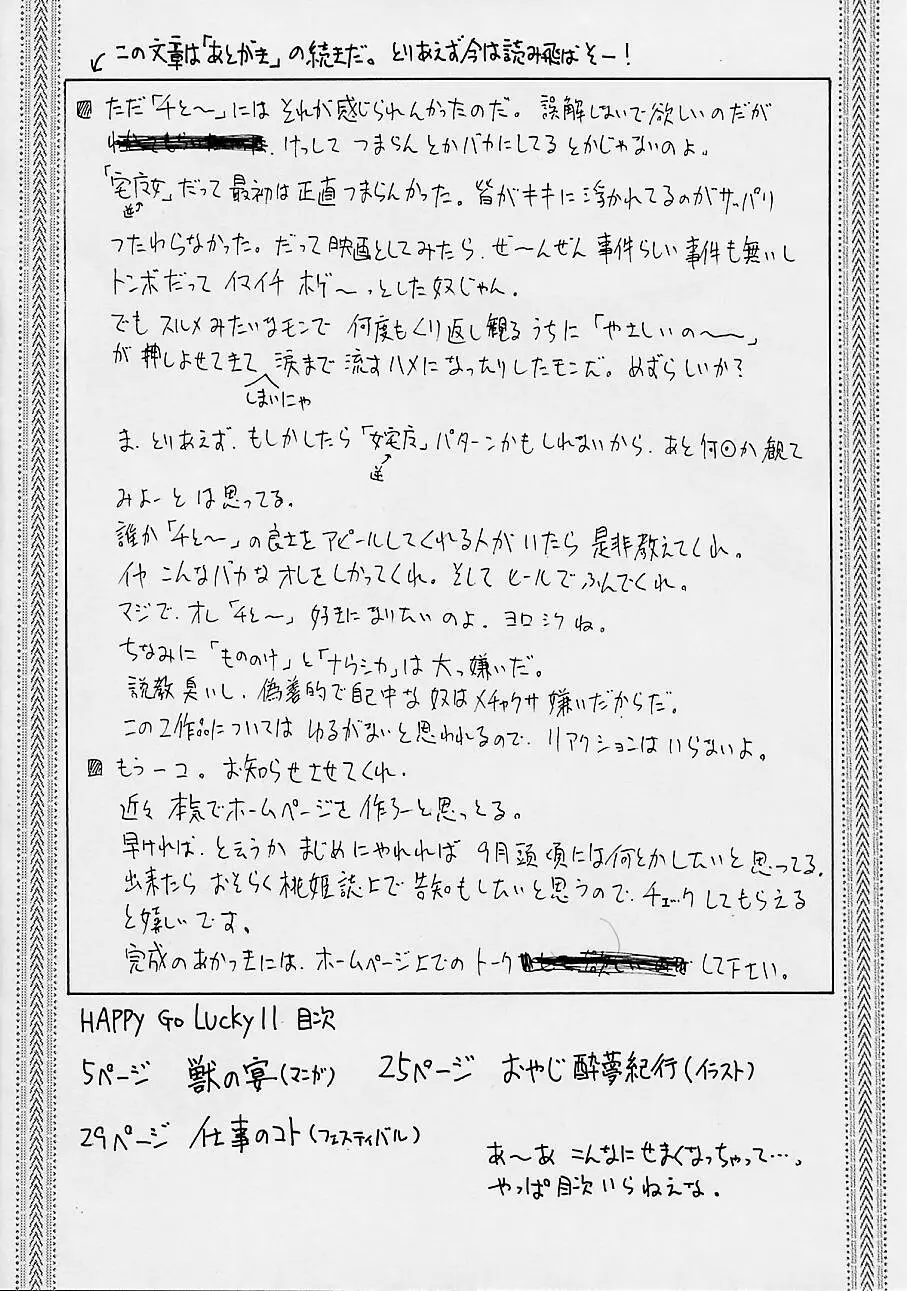 この文章は「あとがき」の続きだ。とりあえず今は読み飛ばそー!
ただ「千と〜」には それが感じられんかったのだ。誤解しないで欲しいのだが
けっして つまらんとかバカにしてるとかじゃないのよ。
「宅急女」だって最初は正直つまらんかった。皆がキキに浮かれてるのがサッパリ
逆
つたわらなかった。だって映画としてみたら、ぜ〜んぜん事件らしい事件も無いし
トンボだって イマイチ ボゲ〜っとした奴じゃん。
でも スルメみたいなモンで 何度もくり返し観るうちに「やさしいの〜〜」
が押しよせてきて 涙まで流すハメになったりしたモンだ。めずらしいか?
しまいにゃ
ま、とりあえず、もしかしたら「女宅急」パターンかもしれないから、あと何回か観て
逆
みよーとは思ってる。
誰か「千と〜」の良さをアピールしてくれる人がいたら 是非教えてくれ。
イヤ こんなバカなオレをしかってくれ。そして ヒールでふんでくれ。
マジで、オレ「千と〜」好きになりたいのよ。ヨロシクね。
ちなみに「もののけ」と「ナウシカ」は大っ嫌いだ。
説教臭いし、偽善的で自己中な奴はメチャクサ嫌いだからだ。
この2作品については ゆるがないと思われるので、リアクションはいらないよ。
もう一コ。お知らせさせてくれ。
近々 本気でホームページを作ろーと思っとる。
早ければ、と云うか まじめにやれれば 9月頭頃には何とかしたいと思ってる。
出来たら おそらく桃姫誌上で告知もしたいと思うので、チェックしてもらえる
と嬉しいです。
完成のあかつきには、ホームページ上でのトーク して下さい。
HAPPY Go Lucky 11 目次
5ページ 獣の宴(マンガ) 25ページ おやじ酔夢紀行(イラスト)
29ページ 仕事のコト(フェスティバル)
あ〜あ こんなにせまくなっちゃって…。
やっぱ目次いらねえな。